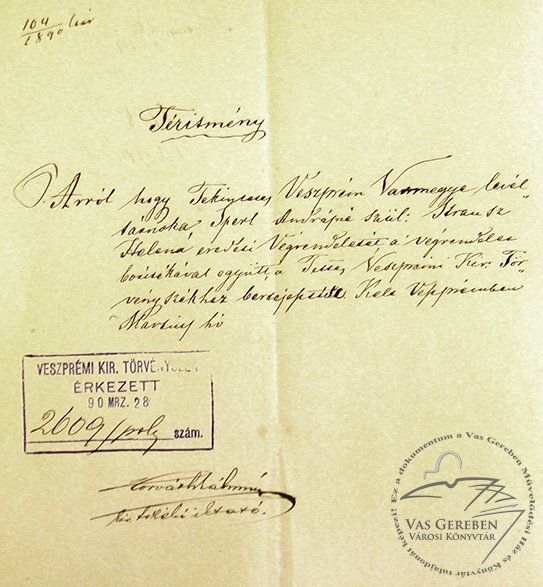 104
1890
Téritmény
Arról hogy Tekintetes Veszprém Vármegye levél
tárnoka, Andrásné szül: Strausz
Helena eredeti Végrendeletét a végrendelet
együtt, a Ttes Veszprémi Kir. Tör„
vényszékhez Kelt Veszprémben
hó
VESZPRÉMI KIR. TÖRVÉNYSZÉK
ÉRKEZETT
90 MRZ. 28
2609/polg szám.
Horváth Kálmán
kir.
Ez a dokumentum a Vas Gereben Művelődési Ház és Könyvtár tulajdonát képezi!
VAS GEREBEN
VÁROSI KÖNYVTÁR